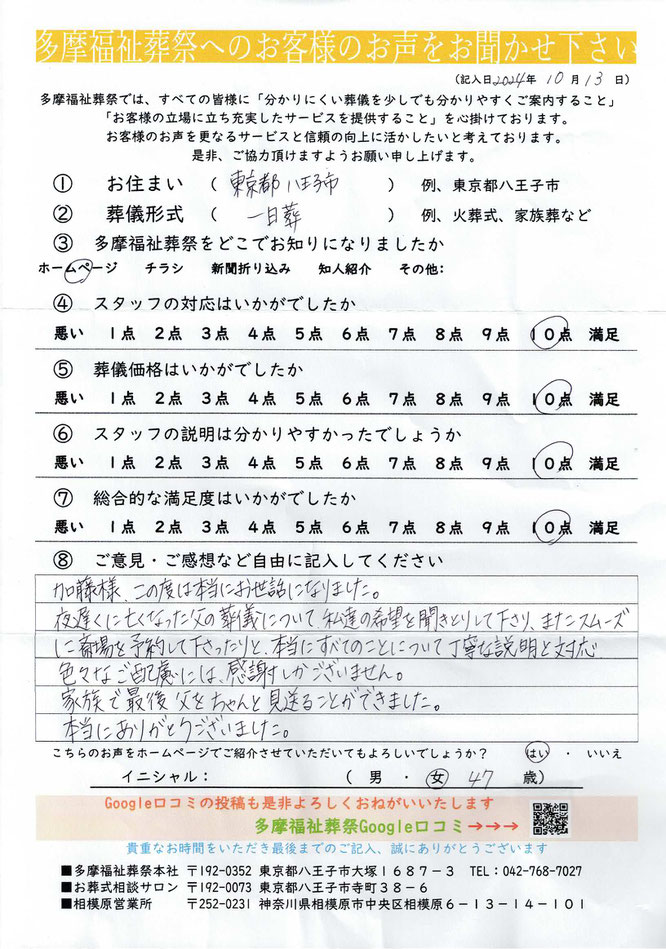 多摩福祉葬祭へのお客様のお声をお聞かせ下さい
（記入日2024年 10月 13日）
多摩福祉葬祭では、すべての皆様に「分かりにくい葬儀を少しでも分かりやすくご案内すること」
「お客様の立場に立ち充実したサービスを提供すること」を心掛けております。
お客様のお声を更なるサービスと信頼の向上に活かしたいと考えております。
是非、ご協力頂けますようお願い申し上げます。
① お住まい （ 東京都八王子市 ） 例、東京都八王子市
② 葬儀形式 （ 一日葬 ） 例、火葬式、家族葬など
③ 多摩福祉葬祭をどこでお知りになりましたか
ホームページ チラシ 新聞折り込み 知人紹介 その他：
④ スタッフの対応はいかがでしたか
悪い 1点 2点 3点 4点 5点 6点 7点 8点 9点 10点 満足
⑤ 葬儀価格はいかがでしたか
悪い 1点 2点 3点 4点 5点 6点 7点 8点 9点 10点 満足
⑥ スタッフの説明は分かりやすかったでしょうか
悪い 1点 2点 3点 4点 5点 6点 7点 8点 9点 10点 満足
⑦ 総合的な満足度はいかがでしたか
悪い 1点 2点 3点 4点 5点 6点 7点 8点 9点 10点 満足
⑧ ご意見・ご感想など自由に記入してください
加藤様、この度は本当にお世話になりました。
夜遅くに亡くなった父の葬儀について、私達の希望を聞きとりして下さり、またスムーズ
に斎場を予約して下さったりと、本当にすべてのことについて丁寧な説明と対応
色々なご配慮には、感謝しかございません。
家族で最後父をちゃんと見送ることができました。
本当にありがとうございました。
こちらのお声をホームページでご紹介させていただいてもよろしいでしょうか？ はい ・ いいえ
イニシャル： （ 男 ・ 女 47 歳）
Google口コミの投稿も是非よろしくおねがいいたします
多摩福祉葬祭Google口コミ→→→
貴重なお時間をいただき最後までのご記入、誠にありがとうございます
■多摩福祉葬祭本社 〒192-0352 東京都八王子市大塚1687－3 TEL：042-768-7027
■お葬式相談サロン 〒192-0073 東京都八王子市寺町38－6
■相模原営業所 〒252-0231 神奈川県相模原市中央区相模原6－13－14－101